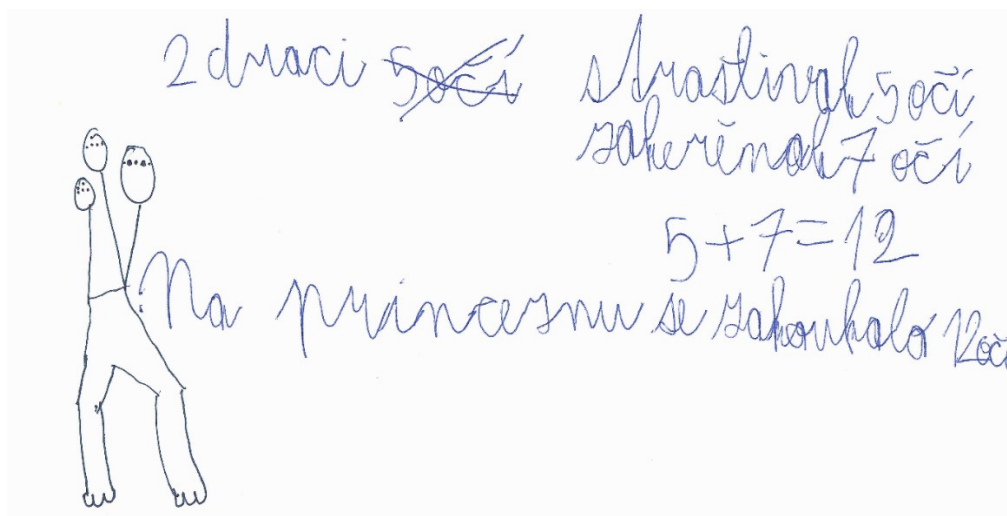 2 draci 5 očí strastivak 5 očí
zakeřěnak 7 očí
5+7=12
Na princeznu se zakoukaló 12 očí